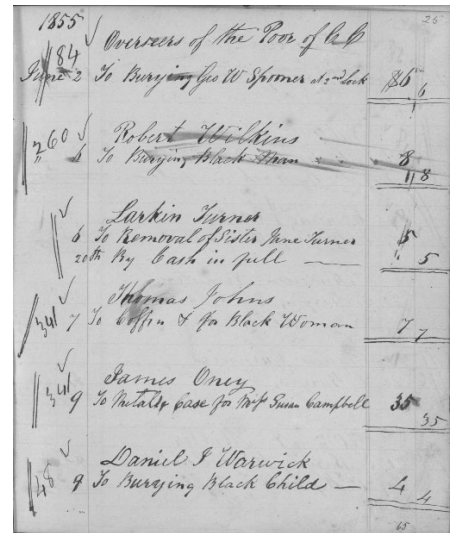 1855 25
84 Overseers of the Poor of C C
June 2 To Burying Geo W Spooner at 2nd Lock $6 6
260 Robert Wilkins
" 6 To Burying Black Man 8 8
Larkin Turner
6 To Removal of Sister Jane Turner 5
20th By Cash in full — 5
Thomas Johns
341 7 To Coffin & for Black Woman 7 7
James Oney
341 9 To Metalic Case for Mrs Susan Campbell 35 35
Daniel J Warwick
48 9 To Burying Black Child — 4 4
65